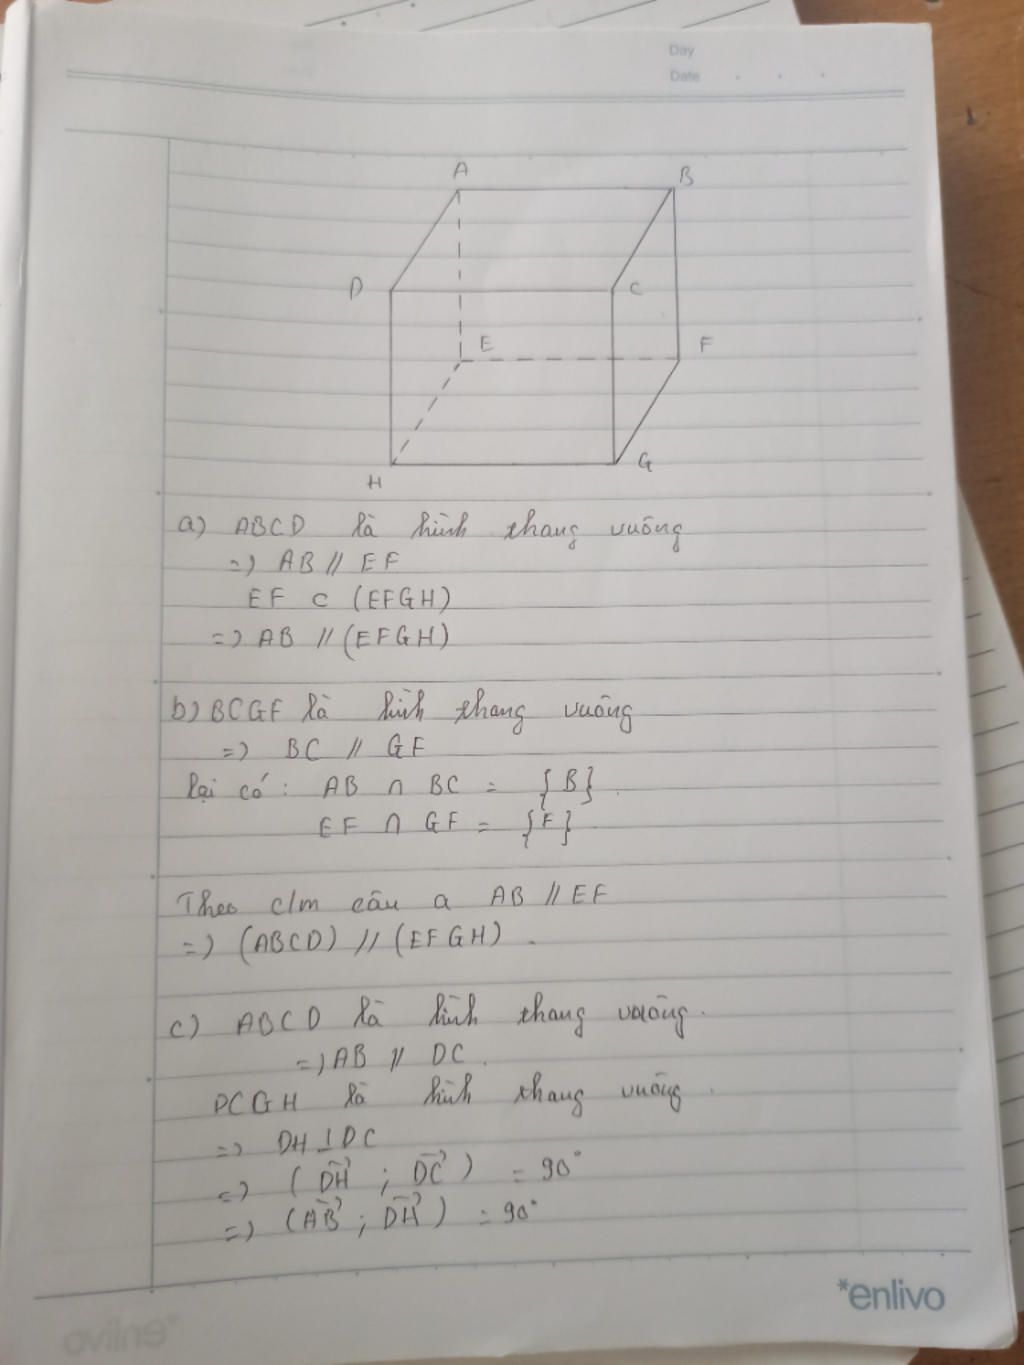 Day
Date
A
B
D
C
E
F
H
G
a) ABCD là hình thang vuông
=> AB // EF
EF ⊂ (EFGH)
=> AB // (EFGH)
b) BCGF là hình thang vuông
=> BC // GF
lại có : AB ∩ BC = {B}
EF ∩ GF = {F}
Theo c/m câu a AB // EF
=> (ABCD) // (EFGH) .
c) ABCD là hình thang vuông.
=> AB // DC.
DCGH là hình thang vuông.
=> DH ⊥ DC
=> (DH→ ; DC→) = 90°
=> (AB→ ; DH→) = 90°
*enlivo